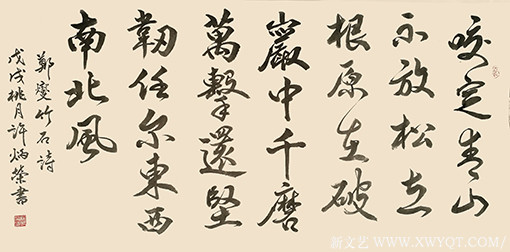 咬定青山
不放松立
根原在破
巖中千磨
萬擊還堅
韌任尔東西
南北風
鄭燮竹石詩
戊戌桃月許炳榮書
新文艺 WWW.XWYQT.COM/